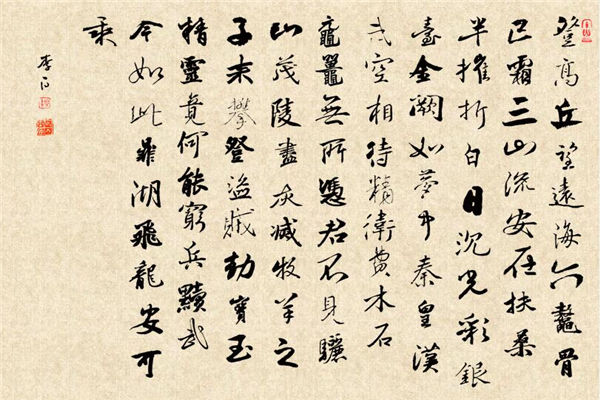 登高丘望遠海六鰲骨
已霜三山流安在扶桑
半摧折白日沉光彩銀
臺金闕如夢中秦皇漢
武空相待精衛費木石
黿鼉無所憑君不見驪
山茂陵盡灰滅牧羊之
子来攀登盜賊劫寶玉
精靈竟何能窮兵黷武
今如此鼎湖飛龍安可
乘
李白